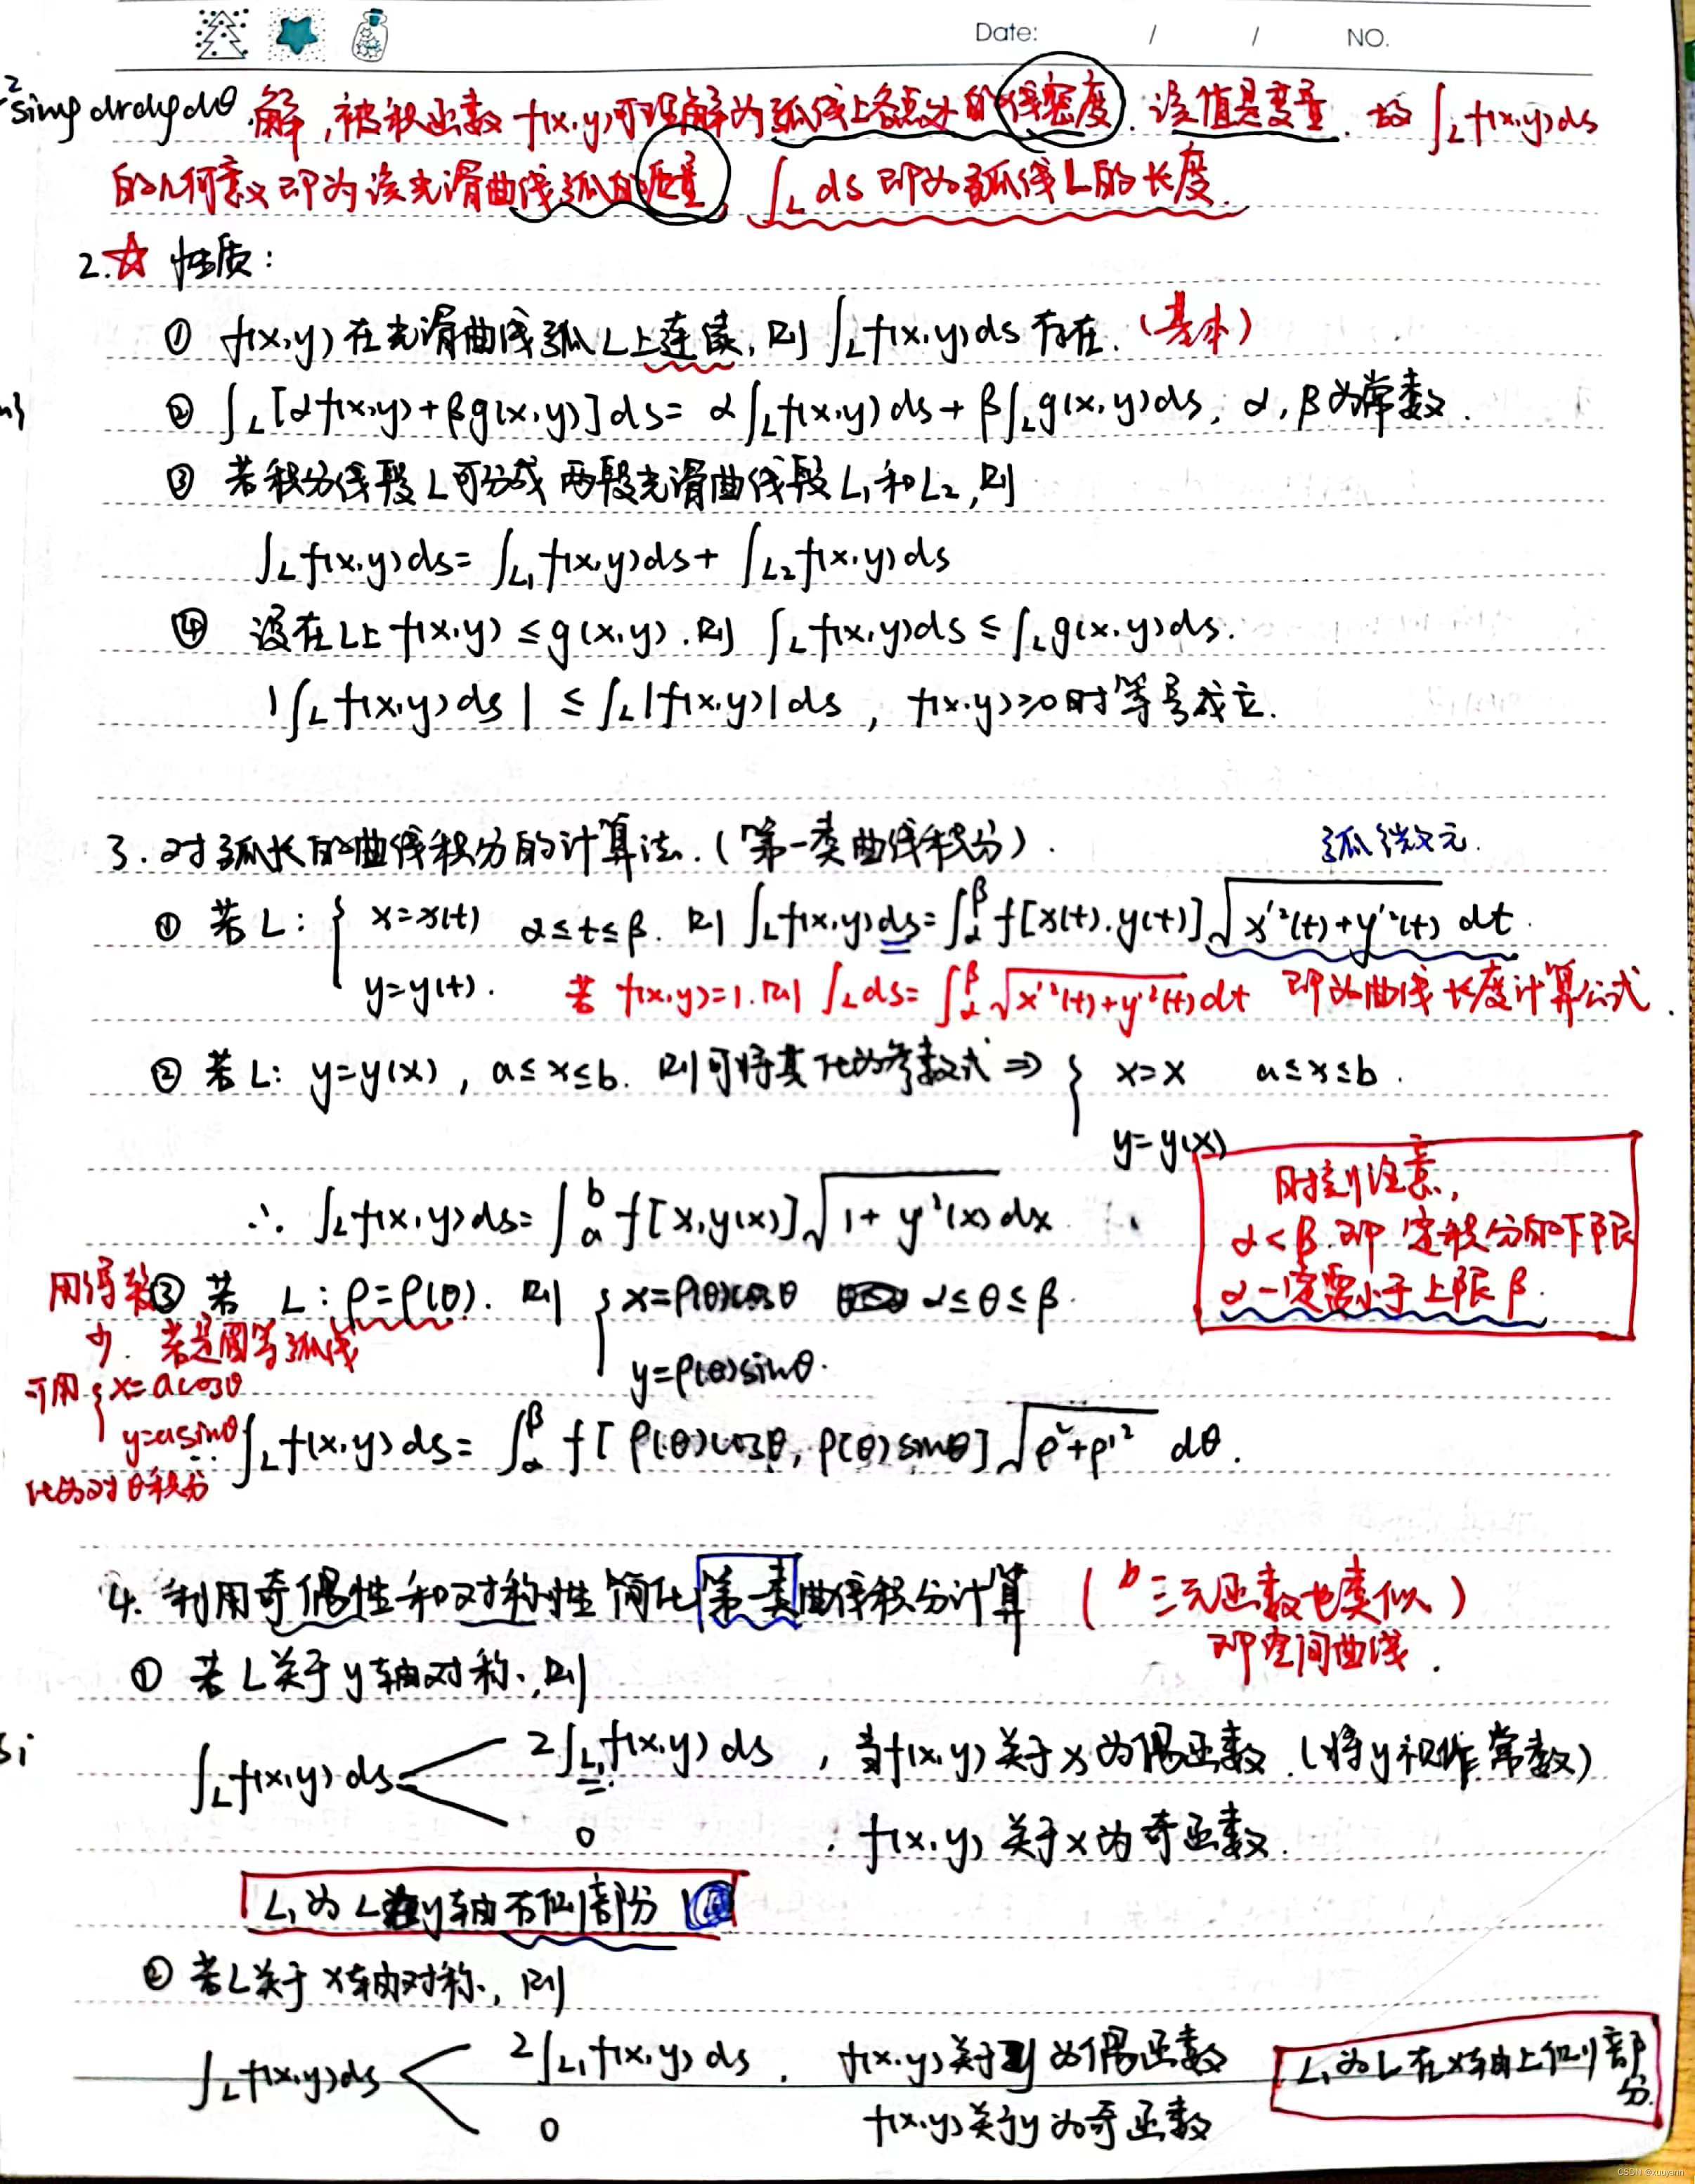 Date: / / NO.
解,被积函数 f(x,y)可理解为弧线上各点处的线密度.该值是变量.故 ∫_L f(x,y)ds
的几何意义即为该光滑曲线弧的质量, ∫_L ds 即为弧线L的长度.
2.☆ 性质:
① f(x,y)在光滑曲线弧L上连续,则 ∫_L f(x,y)ds 存在.(基本)
② ∫_L [αf(x,y)+βg(x,y)]ds= α∫_L f(x,y)ds+β∫_L g(x,y)ds, α,β为常数.
③ 若积分线段L可分成两段光滑曲线段L₁和L₂,则
∫_L f(x,y)ds= ∫_L₁ f(x,y)ds+ ∫_L₂ f(x,y)ds
④ 设在L上 f(x,y)≤g(x,y).则 ∫_L f(x,y)ds≤∫_L g(x,y)ds.
|∫_L f(x,y)ds| ≤ ∫_L |f(x,y)|ds, f(x,y)≥0时等号成立.
3.对弧长的曲线积分的计算法.(第一类曲线积分).
弧微元.
① 若L: { x=x(t) α≤t≤β. 则 ∫_L f(x,y)ds=∫_α^β f[x(t),y(t)]√(x'²(t)+y'²(t)) dt.
y=y(t). 若 f(x,y)=1.则 ∫_L ds= ∫_α^β √(x'²(t)+y'²(t)) dt 即为曲线长度计算公式.
② 若L: y=y(x), a≤x≤b. 则可将其化为参数式 ⇒ { x=x a≤x≤b.
y=y(x)
时刻注意,
α<β.即定积分的下限
α一定要小于上限β.
∴ ∫_L f(x,y)ds= ∫_a^b f[x,y(x)]√(1+y'²(x)) dx
用得较
少. 若是圆等弧线
可用 { x=acosθ
y=asinθ
化为对θ积分
③ 若 L: ρ=ρ(θ). 则 { x=ρ(θ)cosθ α≤θ≤β.
y=ρ(θ)sinθ.
∴ ∫_L f(x,y)ds= ∫_α^β f[ρ(θ)cosθ, ρ(θ)sinθ]√(ρ²+ρ'²) dθ.
4. 利用奇偶性和对称性简化第一类曲线积分计算 (三元函数也类似)
即空间曲线.
① 若L关于y轴对称,则
∫_L f(x,y)ds 2∫_L₁ f(x,y)ds, 当f(x,y)关于x为偶函数.(将y视作常数)
0 , f(x,y)关于x为奇函数.
L₁为L在y轴右侧部分
② 若L关于x轴对称,则
∫_L f(x,y)ds 2∫_L₁ f(x,y)ds. f(x,y)关于y为偶函数
0 f(x,y)关于y为奇函数
L₁为L在x轴上侧部
分.
CSDN @xuuyann